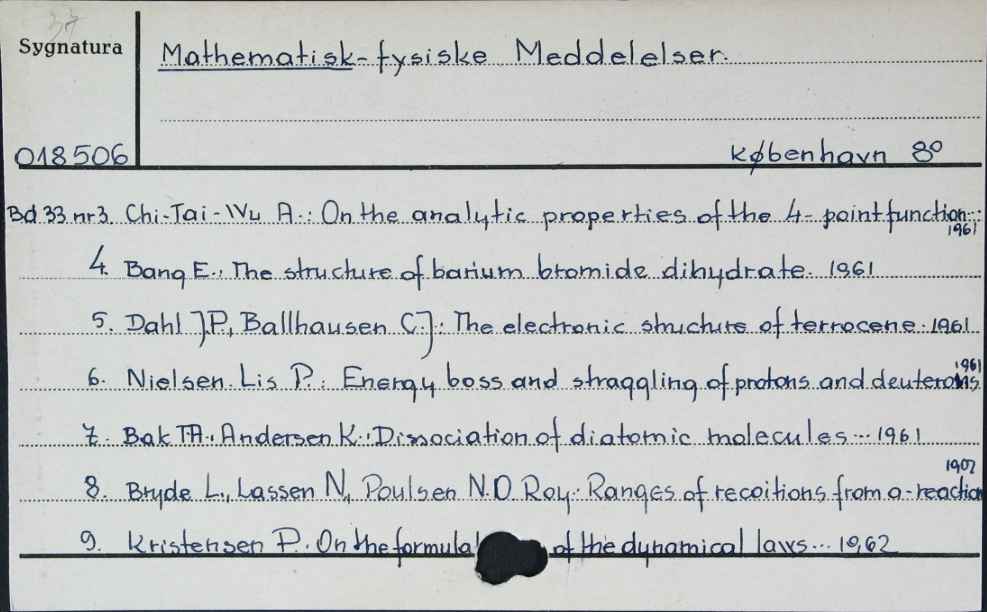 37
Sygnatura
Mathematisk-fysiske Meddelelser.
018506
København 8°
Bd 33 nr 3. Chi-Tai-Wu A.: On the analytic properties of the 4-point function...
1961
4. Bang E.: The structure of barium bromide dihydrate. 1961
5. Dahl J.P., Ballhausen C.J.: The electronic structure of ferrocene. 1961
1961
6. Nielsen Lis P.: Energy boss and straggling of protons and deuterons
7. Bak TA., Andersen K.: Dissociation of diatomic molecules... 1961
1902
8. Bryde L., Lassen N, Poulsen N.O. Roy: Ranges of recoitions from a-reaction
9. Kristensen P. On the formula of the dynamical laws... 1962